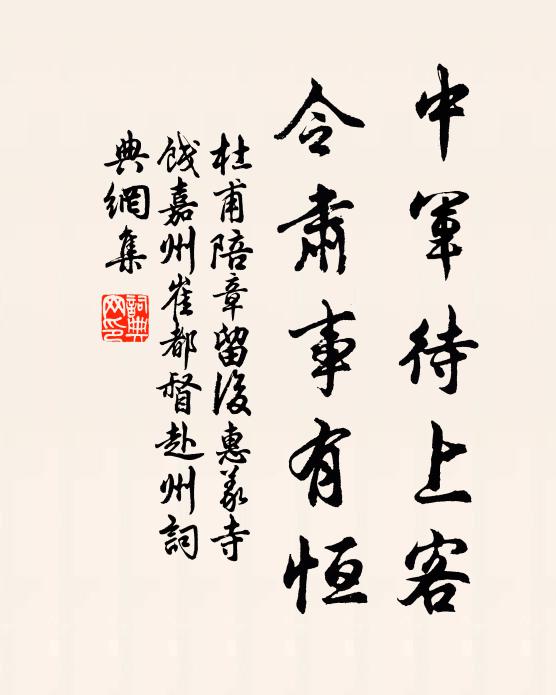 中軍待上客
令肅事有恒
杜甫陪章留後惠義寺
餞嘉州崔都督赴州詞
典網集
詞典网印